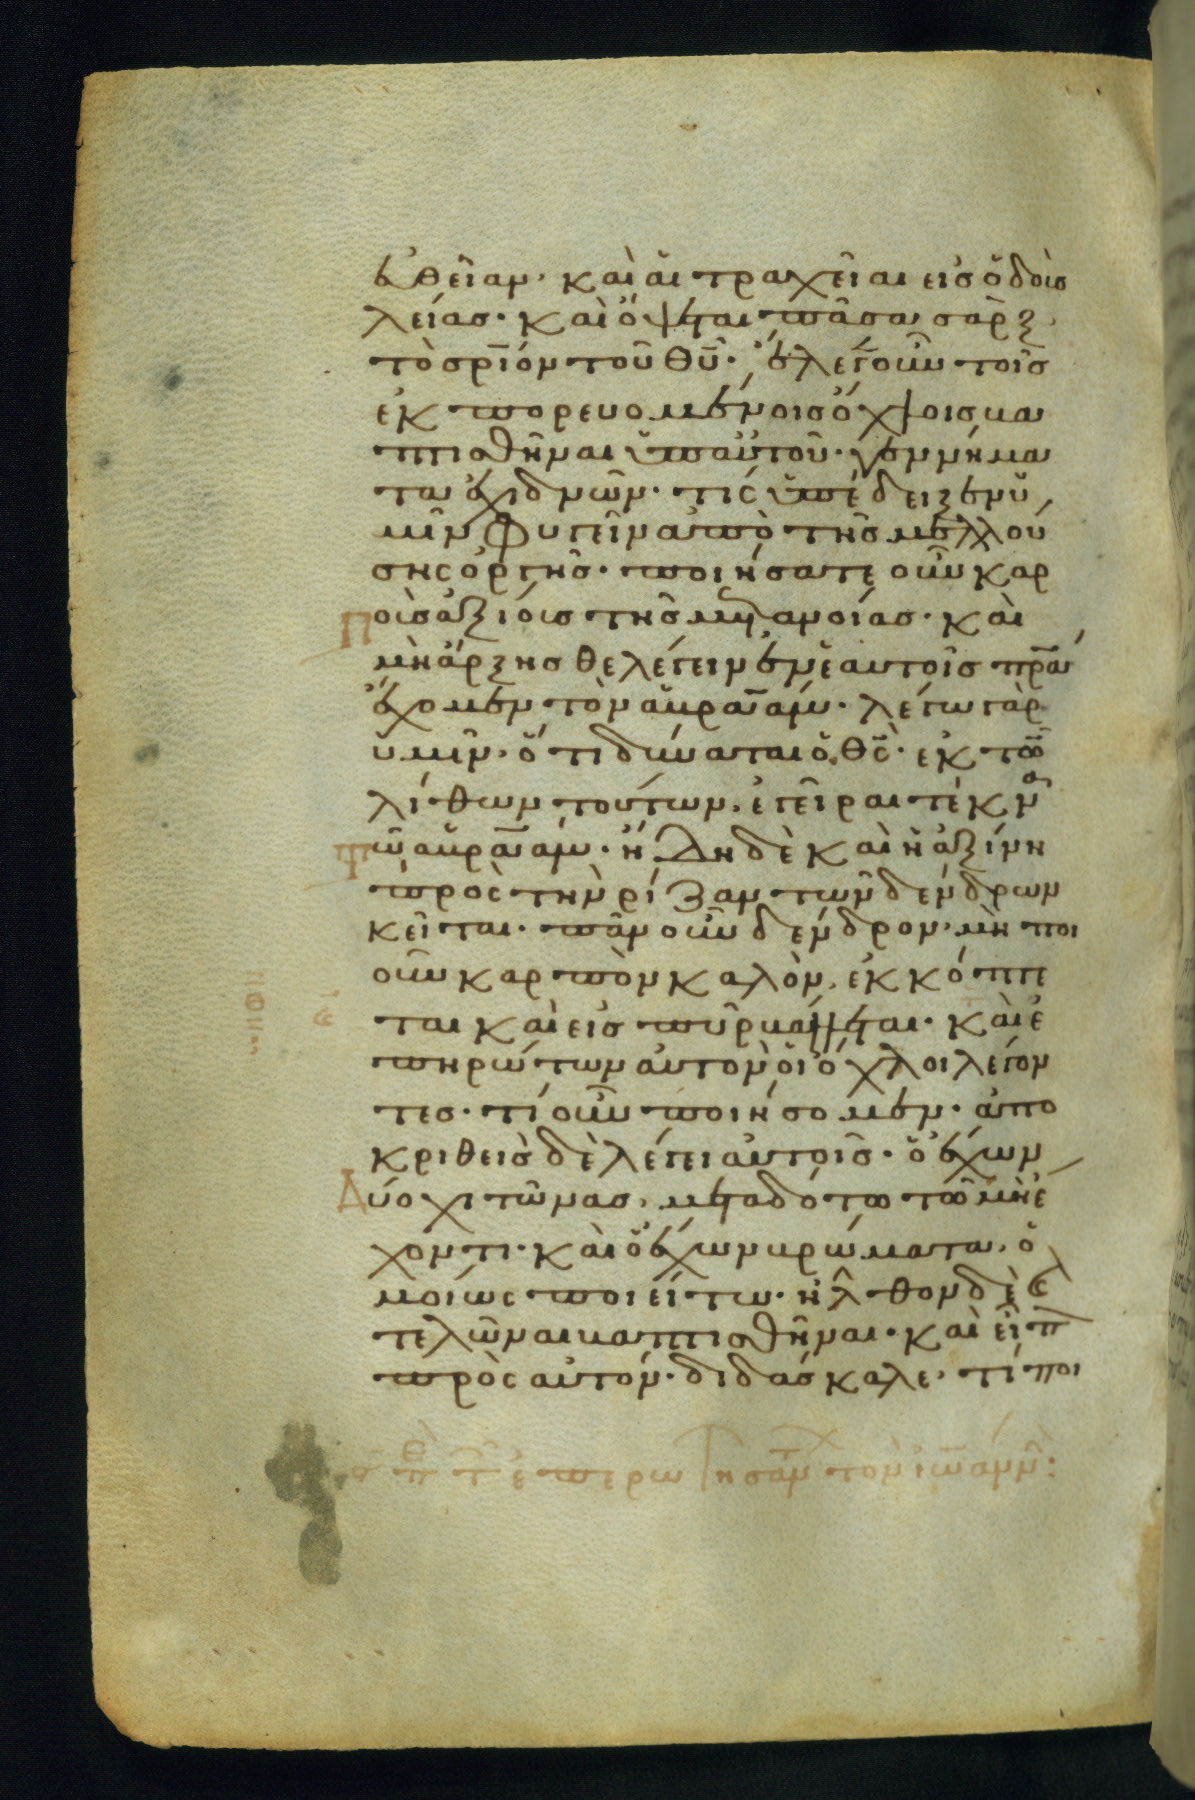 εὐθεῖαν· καὶ αἱ τραχεῖαι εἰς ὁδοὺς
λείας· καὶ ὄψεται πᾶσα σὰρξ
τὸ σρ̅ιον τοῦ θυ̅· ἔλεγεν οὖν τοῖς
ἐκπορευομένοις ὄχλοις βα
πτισθῆναι ὑπ αὐτοῦ· γεννήμα
τα ἐχιδνῶν· τίς ὑπέδειξεν ὑ
μῖν φυγεῖν ἀπὸ τῆς μελλού
σης ὀργῆς· ποιήσατε οὖν καρ
ποὺς ἀξίους τῆς μετανοίας· καὶ
μὴ ἄρξησθε λέγειν ἐν ἑαυτοῖς πρ̅α
ἔχομεν τὸν ἀβραάμ· λέγω γὰρ
ὑμῖν· ὅτι δύναται ὁ θς̅· ἐκ τῶν
λίθων τούτων, ἐγεῖραι τέκνα
τῶ ἀβραάμ· ἤδη δὲ καὶ ἡ ἀξίνη
πρὸς τὴν ρίζαν τῶν δένδρων
κεῖται· πᾶν οὖν δένδρον, μὴ ποι
οῦν καρπὸν καλὸν, ἐκκόπτε
ται καὶ εἰς πῦρ βάλλεται· καὶ ἐ
πηρώτων αὐτὸν οἱ ὄχλοι λέγον
τες· τί οὖν ποιήσομεν· ἀπο
κριθεὶς δὲ λέγει αὐτοῖς· ὁ ἔχων
δύο χιτῶνας, μεταδότω τῶ μὴ ἔ
χοντι· καὶ ὁ ἔχων βρώματα, ὁ
μοίως ποιείτω· ἦλθον δὲ καὶ
τελῶναι βαπτισθῆναι· καὶ εἶπ
πρὸς αὐτόν· διδάσκαλε, τί ποι